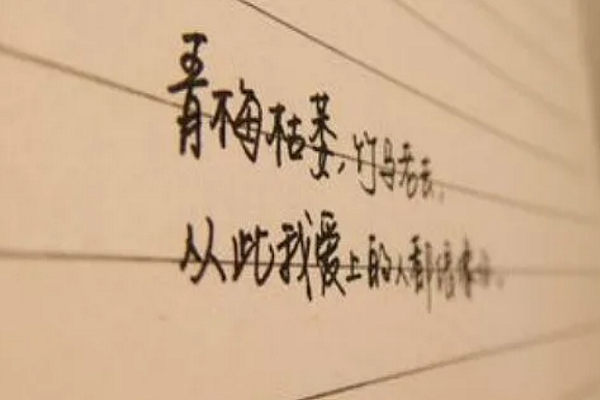 青梅枯萎,竹马老去,
从此我爱上的人都像你。